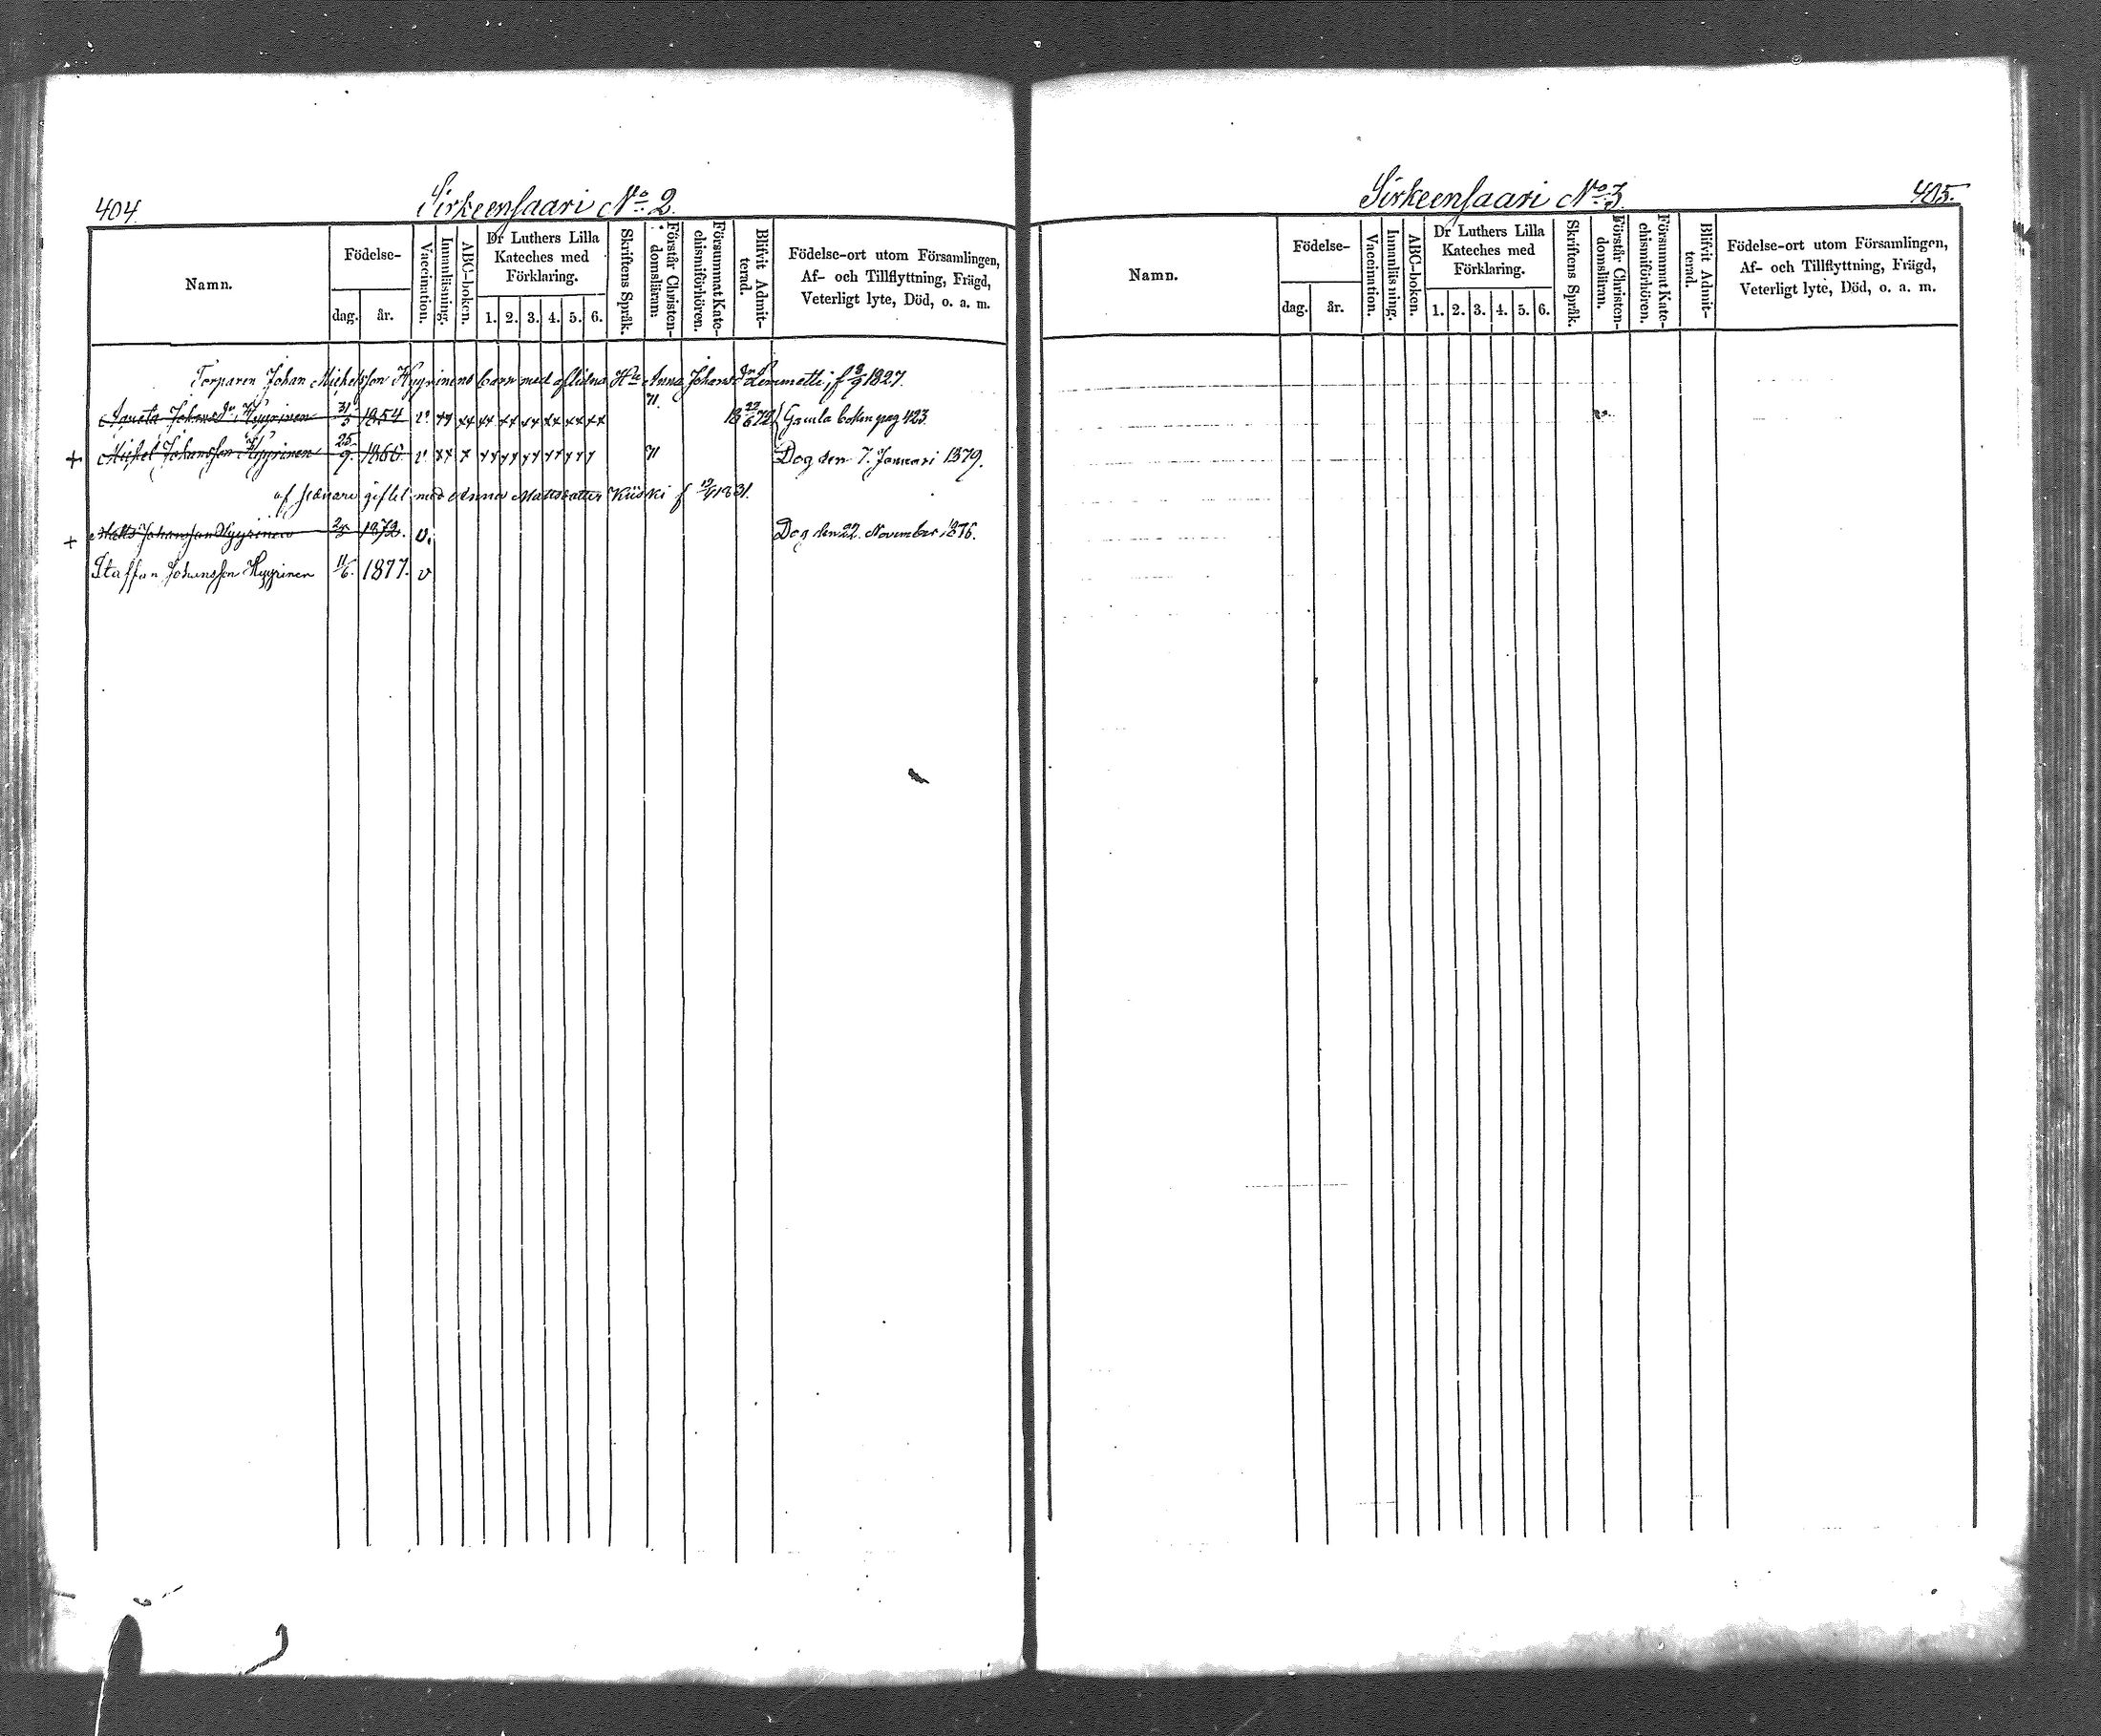 404.
Sirkeensaari No 2.
Namn.
Födelse-
dag.
år.
Vaccination.
Innanläsning.
ABC-boken.
Dr Luthers Lilla
Kateches med
Förklaring.
1. 2. 3. 4. 5. 6.
Skriftens Språk.
Förstår Christen-
domsläran.
Försummat Kate-
chismiförhören.
Blifvit Admit-
terad.
Födelse-ort utom Församlingen,
Af- och Tillflyttning, Frägd,
Veterligt lyte, Död, o. a. m.
Torparen Johan Michelsson Hyyrinens barn med aflidna Hu Anna Johansdr Lemmetti, f 8/9 1827.
Agneta Johansdr Hyyrinen 31/3 1854 v. xx xx xx xx xx xx xx xx n. 18 22/6 72 Gamla boken pag 423.
+ Michel Johansson Hyyrinen 25/9. 1866. v. xx x xx xx xx xx xx x n Dog den 7. Januari 1879.
af senare giftet med Anna Mattsdotter Kiiski f 1831.
+ Matts Johansson Hyyrinen 1872. v. Dog den 22. November 1876.
Staffan Johansson Hyyrinen 11/6. 1877. v
Sirkeensaari No 3.
405.
Namn.
Födelse-
dag.
år.
Vaccination.
Innanläsning.
ABC-boken.
Dr Luthers Lilla
Kateches med
Förklaring.
1. 2. 3. 4. 5. 6.
Skriftens Språk.
Förstår Christen-
domsläran.
Försummat Kate-
chismiförhören.
Blifvit Admit-
terad.
Födelse-ort utom Församlingen,
Af- och Tillflyttning, Frägd,
Veterligt lyte, Död, o. a. m.